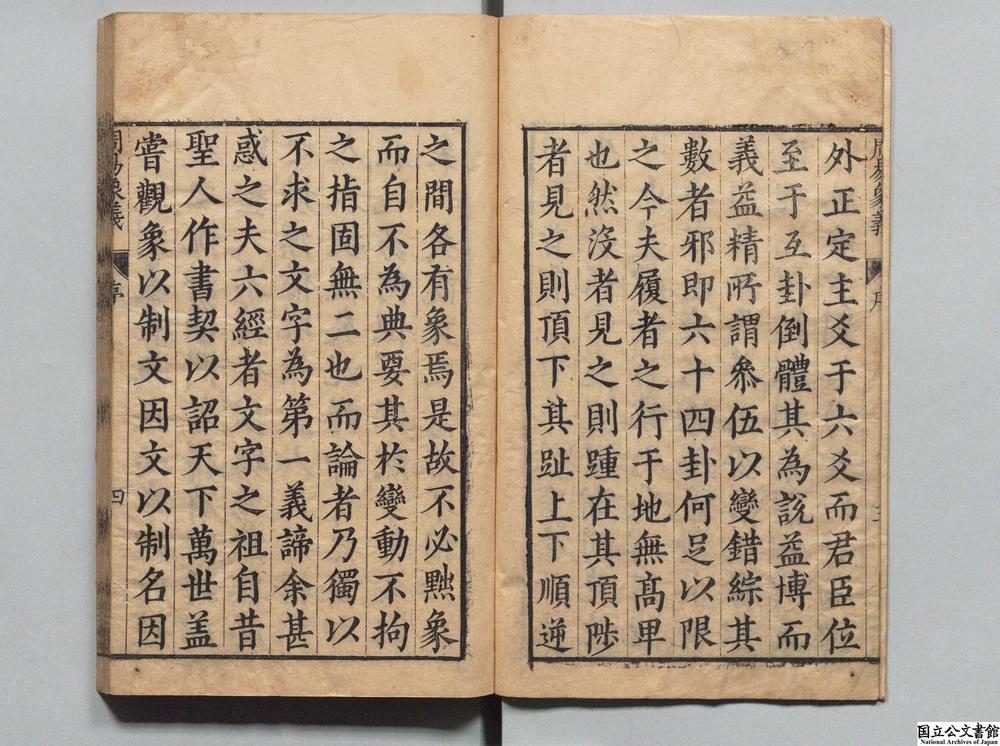 外正定主爻于六爻而君臣位
至于互卦倒體其為説益博而
義益精所謂叅伍以變錯綜其
數者邪即六十四卦何足以限
之今夫履者之行于地無髙卑
也然沒者見之則踵在其頂陟
者見之則頂下其趾上下順逆
之間各有象焉是故不必黙象
而自不為典要其於變動不拘
之指固無二也而論者乃獨以
不求之文字為第一義諦余甚
惑之夫六經者文字之祖自昔
聖人作書契以詔天下萬世盖
嘗觀象以制文因文以制名因
周易象義
序
四
国立公文書館
National Archives of Japan